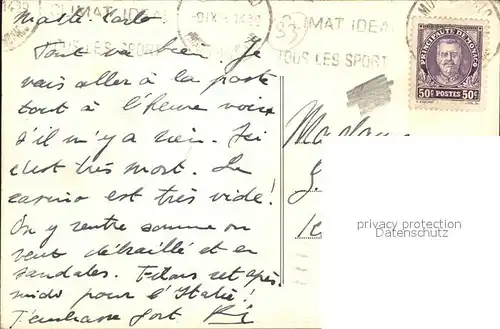 Monte-Carlo
CLIMAT IDEAL
TOUS LES SPORTS
CLIMAT IDEAL
TOUS LES SPORT
PRINCIPAUTE DE MONACO
50c POSTES 50c
Tout va bien. Je
vais aller à la poste
tout à l'heure voir
s'il n'y a rien. Ici
c'est très mort. Le
casino est très vide!
On y rentre comme on
veut débraillé et en
sandales. Filons cet après
midi pour l'Italie!
T'embrasse fort
Madame
privacy protection
Datenschutz